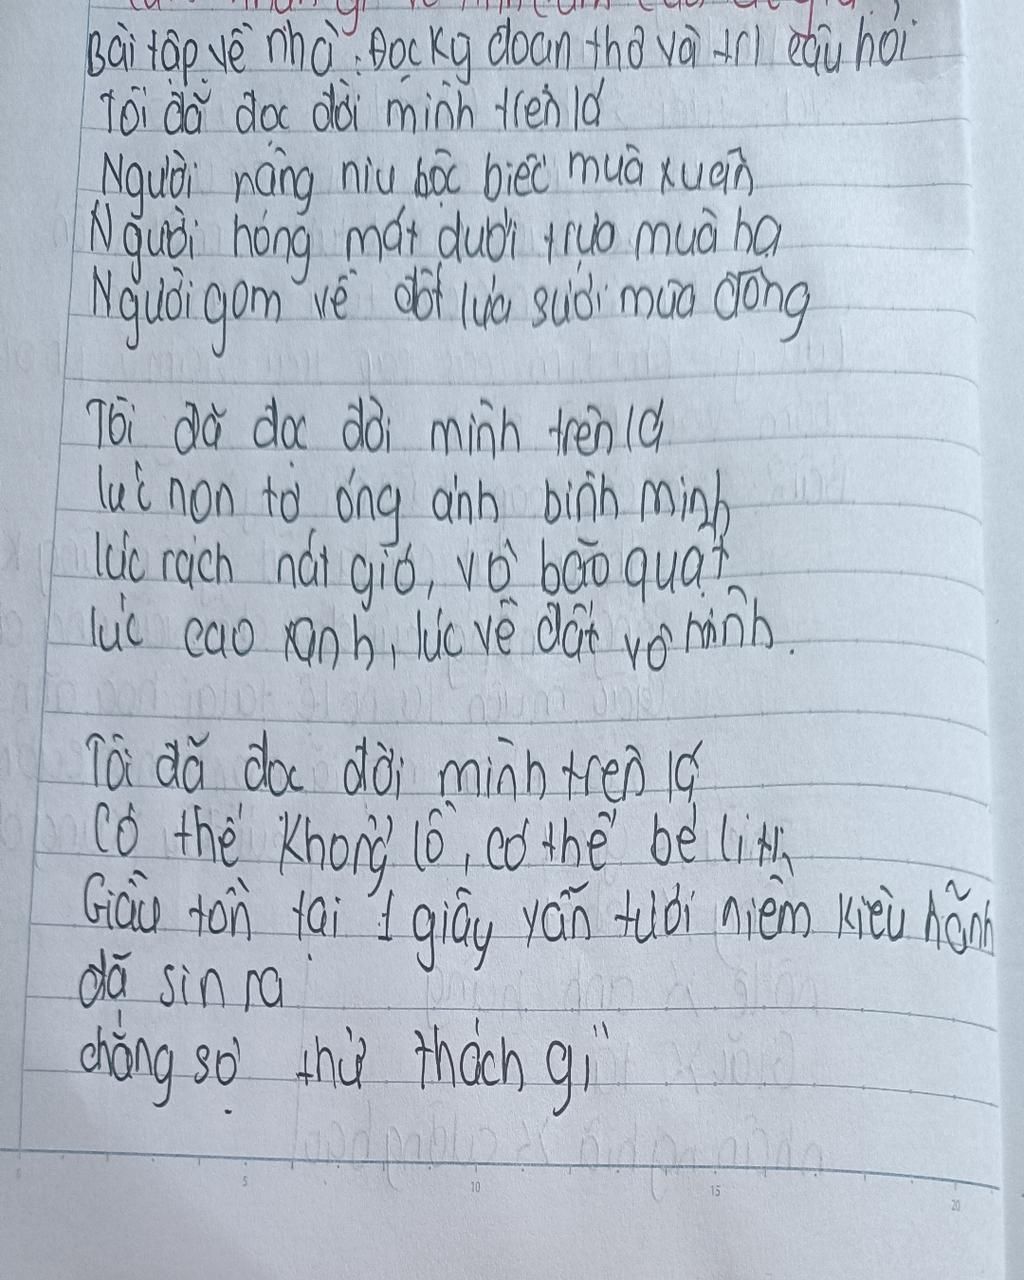 Bài tập về nhà: Đọc kỹ đoạn thơ và trl câu hỏi
Tôi đã đọc đời mình trên lá
Người nâng niu bộc biếc mùa xuân
Người hóng mát dưới trưa mùa hạ
Người gom về đốt lửa sưởi mùa đông
Tôi đã đọc đời mình trên lá
lúc non tơ óng ánh bình minh
lúc rách nát gió, vò bão quật
lúc cao xanh, lúc về đất vô hình.
Tôi đã đọc đời mình trên lá
Có thể khổng lồ, có thể bé li ti
Giẫu tồn tại 1 giây vẫn tươi niềm kiêu hãnh
đã sin ra
chẳng sợ thử thách gì"